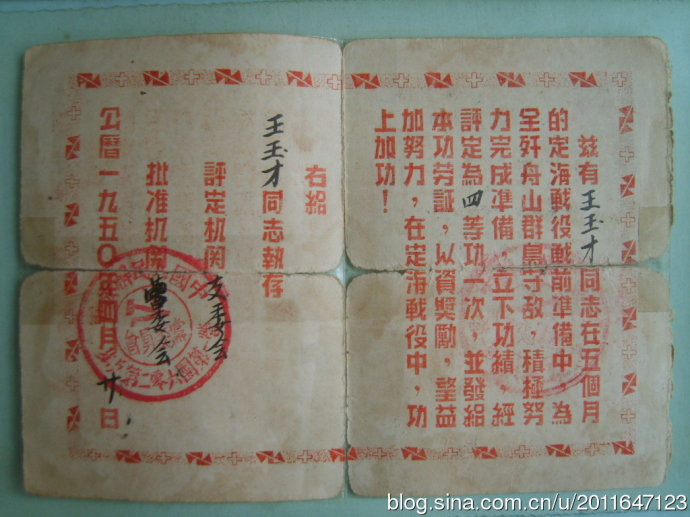 兹有王玉才同志在五個月
的定海戰役戰前準備中，為
全歼舟山群島守敌，積極努
力完成準備，立下功績，經
評定為四等功一次，並發給
本功劳証，以資獎勵，望益
加努力，在定海戰役中，功
上加功！
右給
王玉才同志執存
評定机関 支委会
批准机関 黨委会
公曆一九五〇年四月廿日
blog.sina.com.cn/u/2011647123